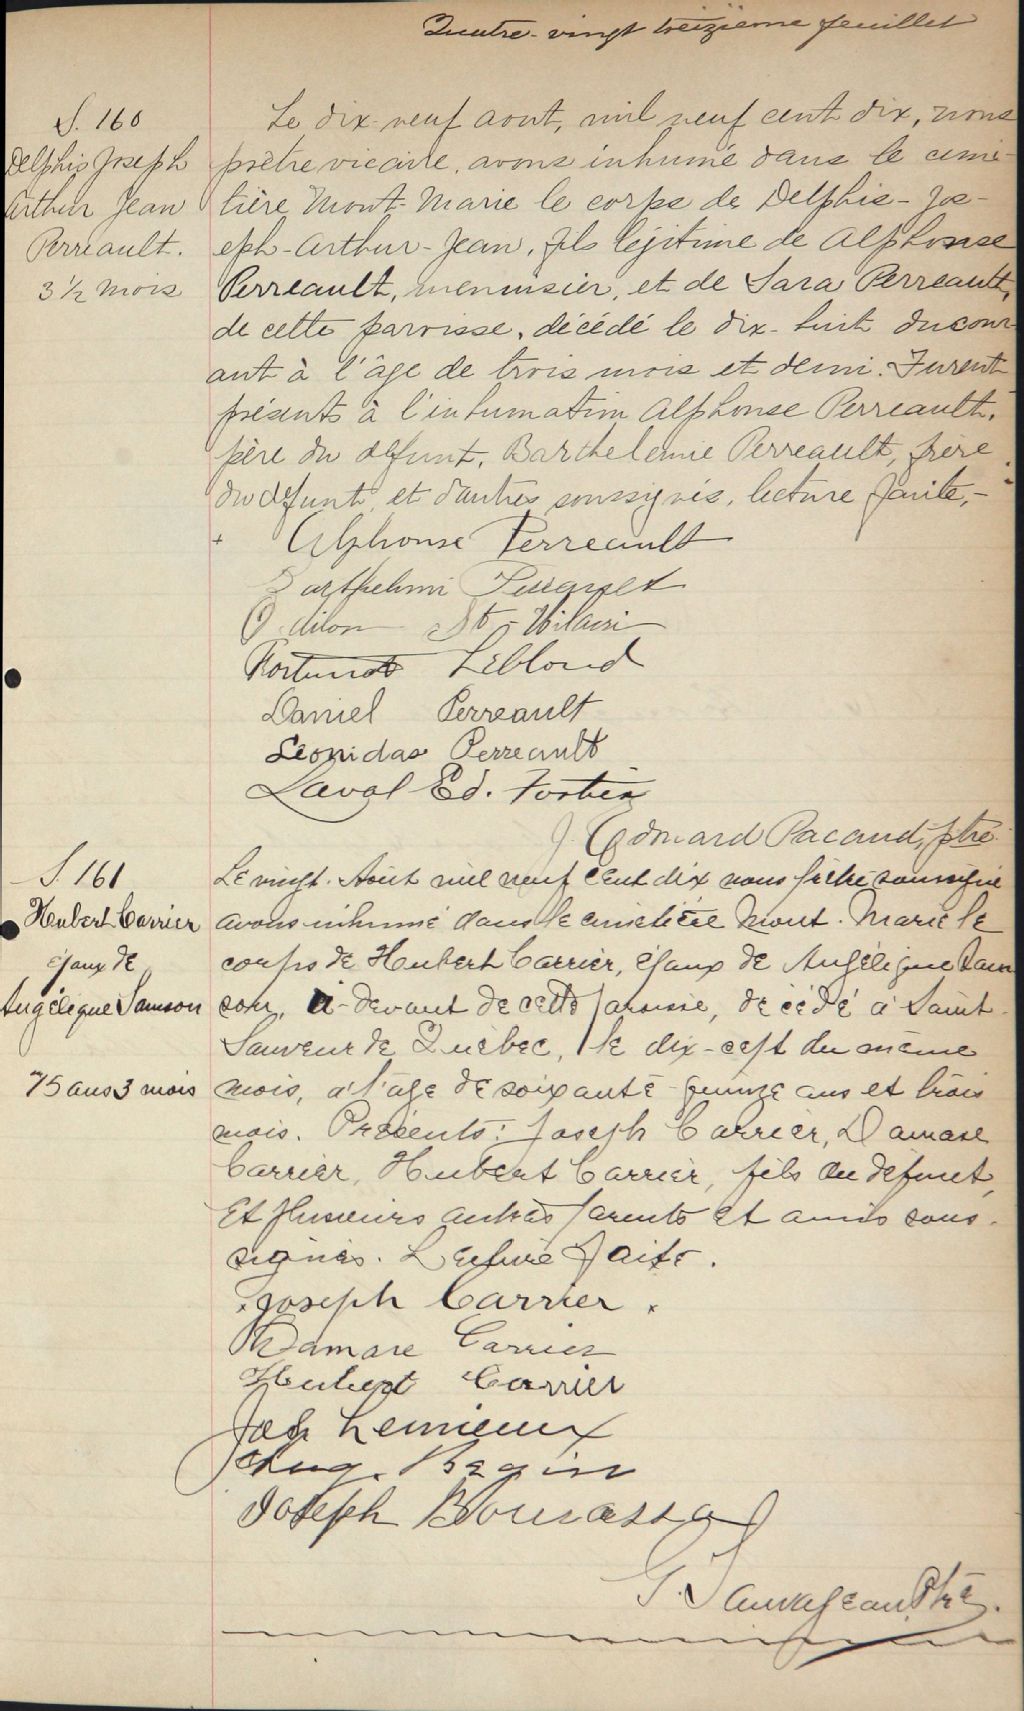 Quatre-vingt treizième feuillet
S. 160
Delphis Joseph
Arthur Jean
Perreault.
3 ½ mois
Le dix-neuf aout, mil neuf cent dix, nous
prêtre vicaire, avons inhumé dans le cime-
tière Mont-Marie le corps de Delphis-Jos-
eph-Arthur-Jean, fils légitime de Alphonse
Perreault, menuisier, et de Sara Perreault,
de cette paroisse, décédé le dix-huit du cour-
ant à l'âge de trois mois et demi. Furent
présents à l'inhumation Alphonse Perreault,
père du défunt, Barthelemie Perreault, frère
du défunt, et d'autres soussignés, lecture faite,-
Alphonse Perreault
Barthelmi Perreault
Odilon St-Hilaire
Fortunat Leblond
Daniel Perreault
Léonidas Perreault
Laval Ed. Fortier
J. Edouard Pacaud, ptre
S. 161
Hubert Carrier
épaux de
Angélique Samson
75 ans 3 mois
Le vingt. Août mil neuf cent dix nous prêtre soussigné
avons inhumé dans le cimetière Mont-Marie le
corps de Hubert Carrier, épaux de Angélique Sam
son, ci-devant de cette paroisse, décédé à Saint-
Sauveur de Québec, le dix-sept du même
mois, à l'age de soixante-quinze ans et trois
mois. Présents: Joseph Carrier, Damase
Carrier, Hubert Carrier, fils du défunt,
et plusieurs autres parents et amis sous-
signés. Lecture faite.
Joseph Carrier.
Damase Carrier
Hubert Carrier
Jos Lemieux
Begin
Joseph Bourassa
G. Sauvageau Ptre.